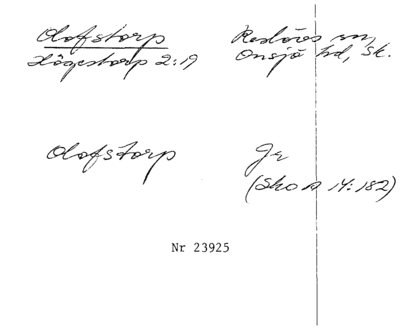 Olofstorp Reslövs sn,
Högestorp 2:19 Onsjö hd, Sk.
Olofstorp Jr
(Sko A 14:182)
Nr 23925